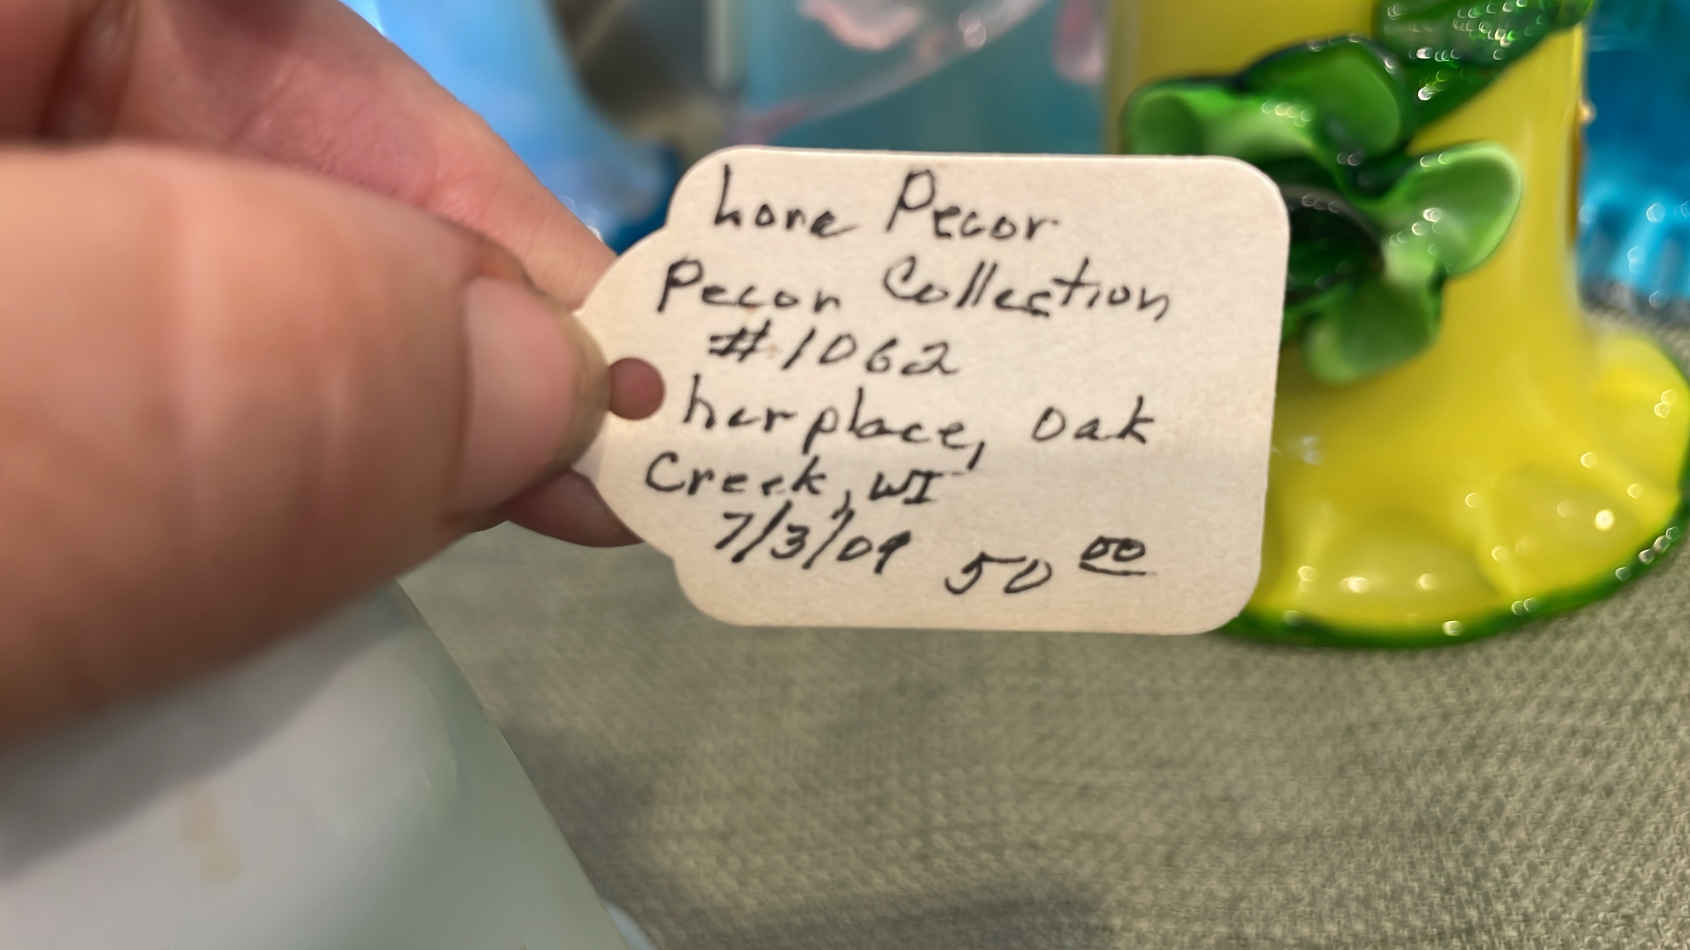 Lone Pecor
Pecor Collection
#1062
her place, Oak
Creek, WI
7/3/09 50 00